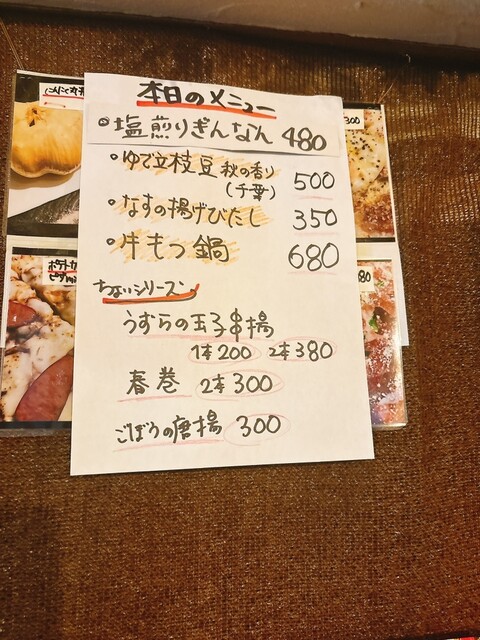 本日のメニュー
塩煎りぎんなん 480
ゆで立枝豆 秋の香り
(千葉) 500
なすの揚げびたし 350
牛もつ鍋 680
ちょいシリーズ
うずらの玉子串揚
1本200 2本380
春巻 2本300
ごぼうの唐揚 300